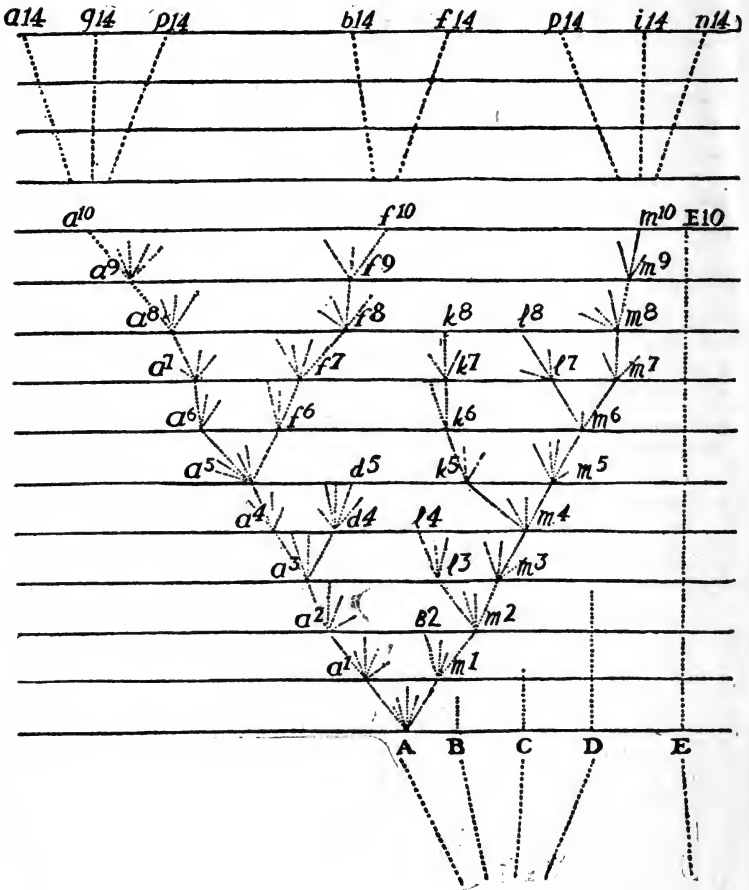 a14 q14 p14 b14 f14 p14 i14 n14
a10 f10 m10 E10
a9 f9 m9
a8 f8 k8 l8 m8
a7 f7 k7 l7 m7
a6 f6 k6 m6
a5 d5 k5 m5
a4 d4 l4 m4
a3 l3 m3
a2 s2 m2
a1 m1
A B C D E